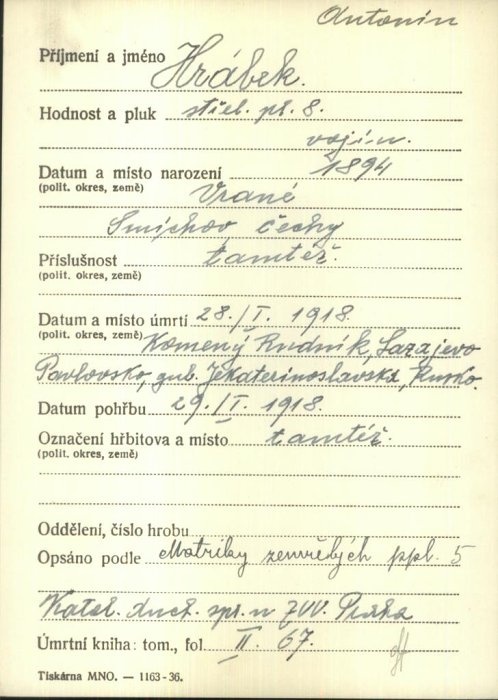 Antonín
Příjmení a jméno Hrábek.
Hodnost a pluk střel. pl. 8.
vojín.
Datum a místo narození 1894
(polit. okres, země) Vrané
Smíchov Čechy
Příslušnost tamtéž.
(polit. okres, země)
Datum a místo úmrtí 28./I. 1918.
(polit. okres, země) Komený Rudnik, Sazajevo
Pavlovsko, gub. Jekaterinoslavská, Rusko.
Datum pohřbu 29./I. 1918.
Označení hřbitova a místo tamtéž.
(polit. okres, země)
Oddělení, číslo hrobu
Opsáno podle Matriky zemřelých ppl. 5
Katol. duch. spr. u ZVV. Praha
Úmrtní kniha: tom., fol. II. 67.
Tiskárna MNO. — 1163-36.